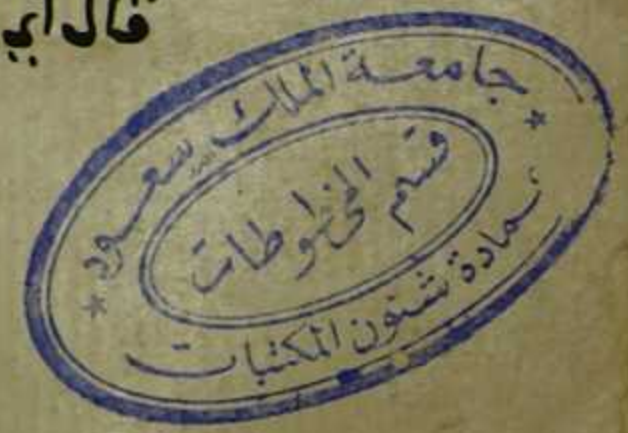 قال أبي
جامعة الملك سعود
قسم المخطوطات
عمادة شئون المكتبات